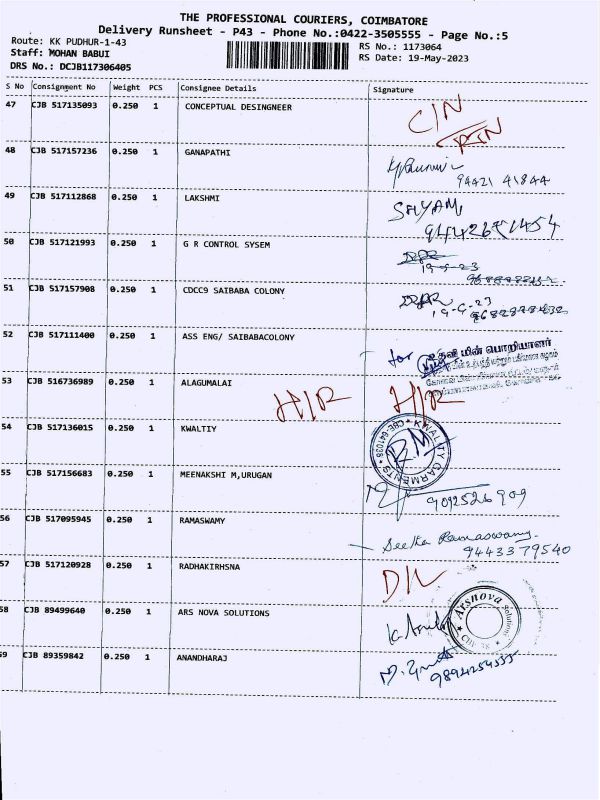 THE PROFESSIONAL COURIERS, COIMBATORE
Delivery Runsheet - P43 - Phone No.:0422-3505555 - Page No.:5
Route: KK PUDHUR-1-43
Staff: MOHAN BABUI
DRS No.: DCJB117306405
RS No.: 1173064
RS Date: 19-May-2023
S No Consignment No Weight PCS Consignee Details Signature
47 CJB 517135093 0.250 1 CONCEPTUAL DESINGNEER C/N
RTN
48 CJB 517157236 0.250 1 GANAPATHI
94421 41844
49 CJB 517112868 0.250 1 LAKSHMI SHYAM
50 CJB 517121993 0.250 1 G R CONTROL SYSEM
19-5-23
51 CJB 517157908 0.250 1 CDCC9 SAIBABA COLONY
52 CJB 517111400 0.250 1 ASS ENG/ SAIBABACOLONY for உதவி மின் பொறியாளர்
53 CJB 516736989 0.250 1 ALAGUMALAI H/R H/R
54 CJB 517136015 0.250 1 KWALTIY KWALITY GARMENTS CBE-641038
55 CJB 517156683 0.250 1 MEENAKSHI M,URUGAN
9092526909
56 CJB 517095945 0.250 1 RAMASWAMY Seetha Ramaswamy
9443379540
57 CJB 517120928 0.250 1 RADHAKIRHSNA D/L
58 CJB 89499640 0.250 1 ARS NOVA SOLUTIONS Arsnova Solutions
59 CJB 89359842 0.250 1 ANANDHARAJ
9894254555